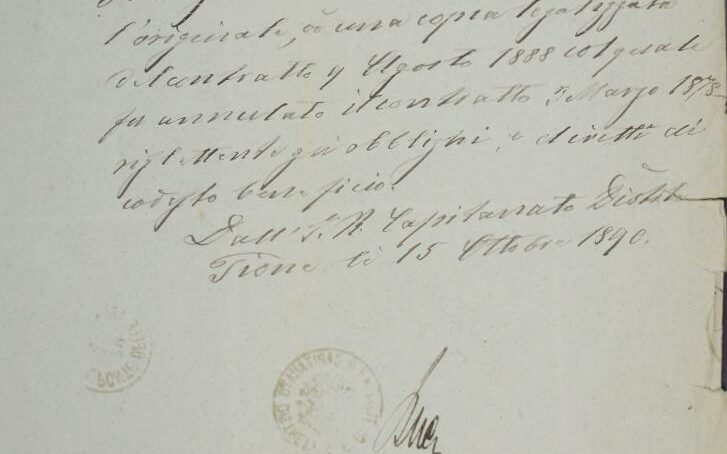 l'originale, od una copia legalizzata
del contratto 9 Agosto 1888 col quale
fu annullato il contratto Marzo 1878
riflettente gli obblighi, e diritti di
codesto beneficio.
Dall' I. R. Capitanato Distr
Tione li 15 Ottobre 1890.